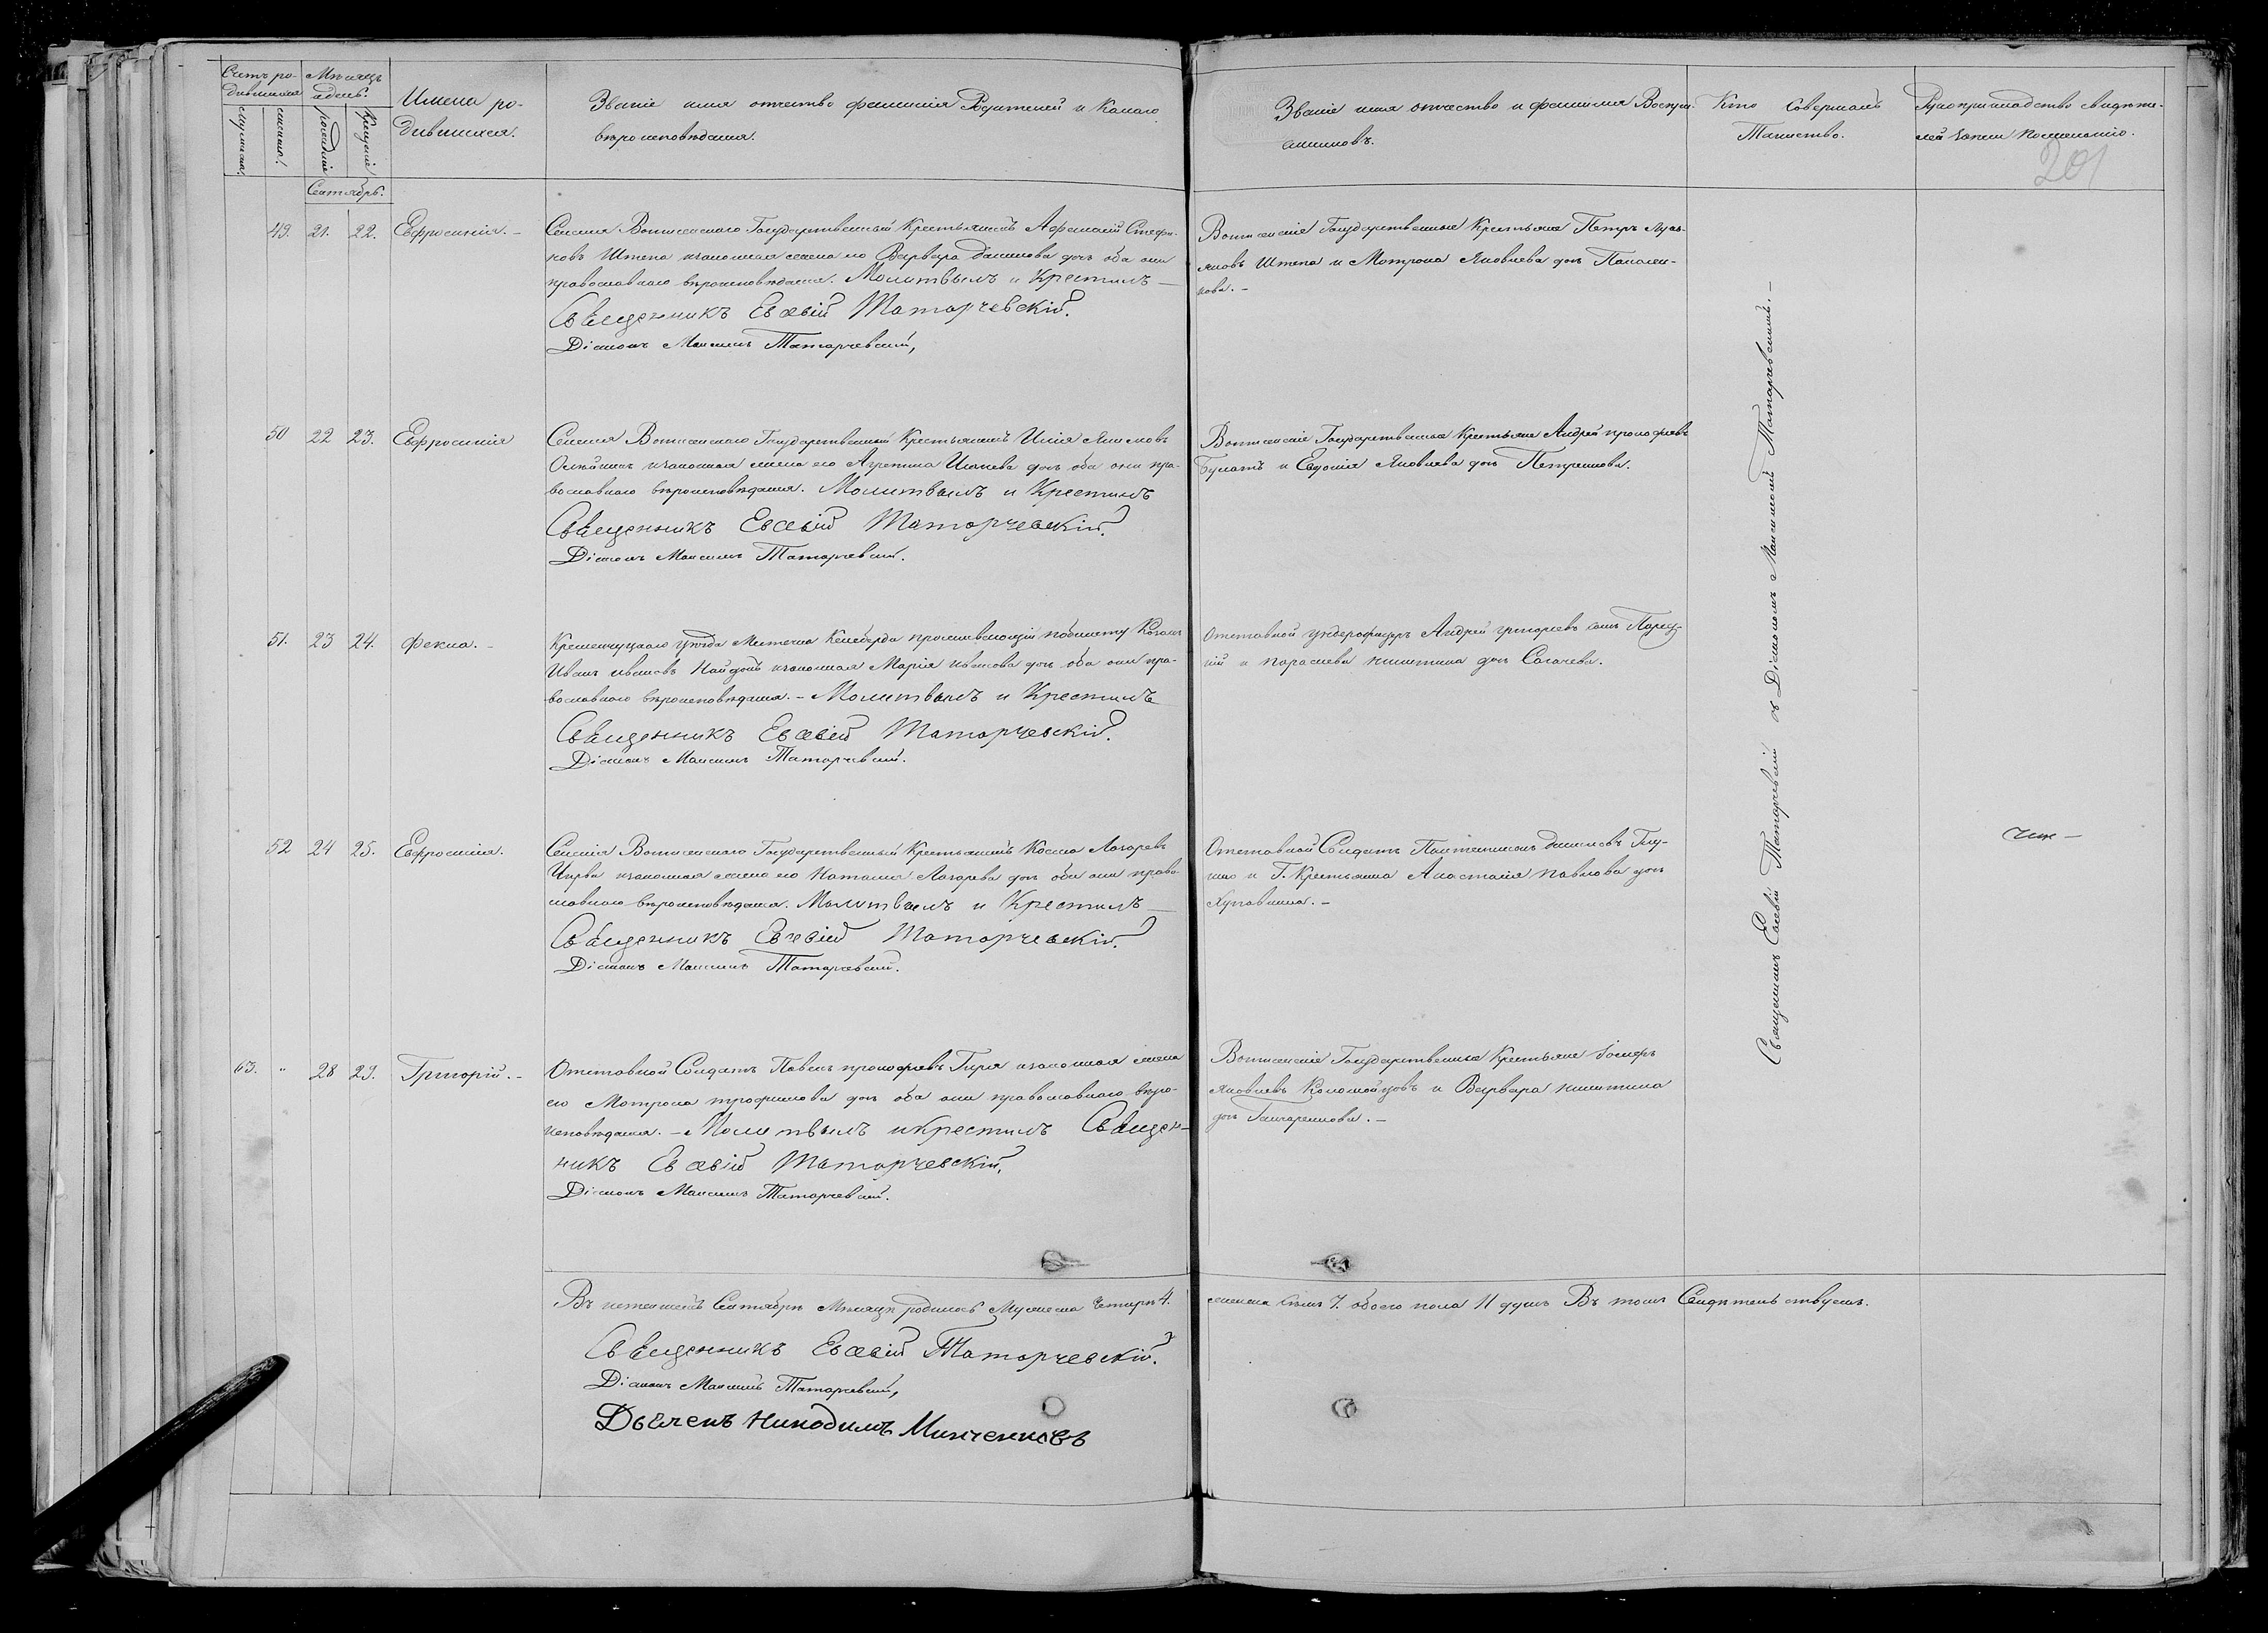 Счетъ ро-
дившихся
Мѣсяцъ
и день.
Имена ро-
дившихся.
Званіе имя отчество фамилія Родителей и Какаго
вѣроисповѣданія.
Званіе имя отчество и фамилія Воспри-
емниковъ.
Кто Совершалъ
Таинство.
Рукоприкладство свидѣте-
лей записи по желанію.
мужеска.
женска.
рожденія
крещенія
Сентябрь.
201
49. 21. 22. Евфросинія. –
Селенія Государственный Крестьянинъ Стефа-
новъ Штепа и законная жена его Варвара Данилова дочь оба они
православнаго вѣроисповѣданія. Молитвилъ и Крестилъ –
Священникъ Евсевій Татарчевскій.
Діаконъ Максимъ Татарчевскій,
Государственные Крестьяне Петръ
Штепа и Мотрона Яковлева дочь
50 22 23. Евфросинія
Селенія Государственный Крестьянинъ Илія Якимовъ
и законная жена его Агрипина дочь оба они пра-
вославнаго вѣроисповѣданія. Молитвилъ и Крестилъ
Священникъ Евсевій Татарчевскій.
Діаконъ Максимъ Татарчевскій.
Государственные Крестьяне Андрей Прокофіевъ
и Евдокія Яковлева дочь Петренкова.
51. 23 24. Фекла. –
Кременчуцкаго уѣзда Местечка Келеберда проживающій по билету Козакъ
Иванъ Ивановъ Найдонъ и законная Марія Иванова дочь оба они пра-
вославнаго вѣроисповѣданія. – Молитвилъ и Крестилъ
Священникъ Евсевій Татарчевскій.
Діаконъ Максимъ Татарчевскій.
Отставной Ундерофицеръ Андрей Григорьевъ сынъ
и Параскева Никитина дочь Сагачева.
52 24 25. Евфросинія.
Селенія Государственный Крестьянинъ Косма Лазаревъ
Чирва и законная жена его Наталія Лазарева дочь оба они право-
славнаго вѣроисповѣданія. Молитвилъ и Крестилъ –
Священникъ Евсевій Татарчевскій.
Діаконъ Максимъ Татарчевскій.
Отставной Солдатъ Пантелимонъ Даниловъ
и Г. Крестьянка Анастасія Павлова дочь
63. " 28 29. Григорій. –
Отставной Солдатъ Павелъ Прокофіевъ Гиря и законная жена
его Мотрона Трофимова дочь оба они православнаго вѣро-
исповѣданія. – Молитвилъ и крестилъ Священ-
никъ Евсевій Татарчевскій.
Діаконъ Максимъ Татарчевскій.
Государственные Крестьяне Іосифъ
Яковлевъ Коломойцовъ и Варвара Никитина
дочь Гончаренкова. –
Священникъ Евсевій Татарчевскій съ Діакономъ Максимомъ Татарчевскимъ. –
Въ истекшемъ Сентябрѣ Мѣсяцѣ родилось Мужеска Четыре 4. женска семь 7. обоего пола 11 душъ Въ томъ Свидѣтельствуемъ.
Священникъ Евсевій Татарчевскій.
Діаконъ Максимъ Татарчевскій,
Дьячекъ Никодимъ Минченковъ